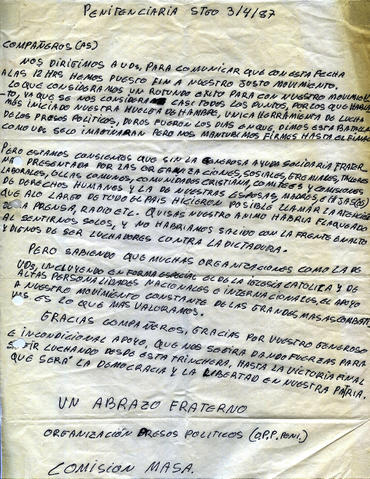 PENITENCIARIA STGO 3/4/87
COMPAÑEROS(AS)
NOS DIRIJIMOS A UDS, PARA COMUNICAR QUE CON ESTA FECHA
A LAS 12 HRS HEMOS PUESTO FIN A NUESTRO JUSTO MOVIMIENTO.
LO QUE CONSIDERAMOS UN ROTUNDO EXITO PARA CON NUESTRO MOVIMIEN
-TO, YA QUE SE NOS CONSIDERA CASI TODOS LOS PUNTOS, POR LOS QUE HABIA
MOS INICIADO NUESTRA HUELGA DE HAMBRE, UNICA HERRAMIENTA DE LUCHA
DE LOS PRESOS POLITICOS, DUROS FUERON LOS DIAS EN QUE, DIMOS ESTA BATALLA
COMO UDS SE LO IMAJINARAN PERO NOS MANTUBIMOS FIRMES HASTA EL FINAL
PERO ESTAMOS CONSIENTES QUE SIN LA GENEROSA AYUDA SOLIDARIA FRATER
NA PRESENTADA POR LAS ORGANIZACIONES, SOSIALES, GREMIALES, TALLERES
LABORALES, OLLAS COMUNES, COMUNIDADES CRISTIANA, COMITEES Y COMISIONES
DE DERECHOS HUMANOS Y LA DE NUESTRAS ESPOSAS, MADRES, E HIJAS(OS)
QUE A LO LARGO DE TODO EL PAIS HICIERON POSIBLE LLAMAR LA ATENCION
DE LA PRENSA, RADIO ETC. QUISAS NUESTRO ANIMO HABRIA FLAQUEADO
AL SENTIRNOS SOLOS, Y NO HABRIAMOS SALIDO CON LA FRENTE EN ALTO
Y DIGNOS DE SER LUCHADORES CONTRA LA DICTADURA.
PERO SABIENDO QUE MUCHAS ORGANIZACIONES COMO LA DE
UDS, INCLUYENDO EN FORMA ESPECIAL EL DE LA IGLESIA CATOLICA Y DE
ALTAS PERSONALIDADES NACIONALES E INTERNACIONALES, EL APOYO
A NUESTRO MOVIMIENTO CONSTANTE DE LAS GRANDES MASAS COMBATI
ES LO QUE MAS VALORAMOS.
GRACIAS COMPAÑEROS, GRACIAS POR VUESTRO GENEROSO
E INCONDICIONAL APOYO, QUE NOS SEGIRA DANDO FUERZAS PARA
LUCHANDO DESDE ESTA TRINCHERA, HASTA LA VICTORIA FINAL
QUE SERÁ LA DEMOCRACIA Y LA LIBERTAD EN NUESTRA PATRIA.
UN ABRAZO FRATERNO
ORGANIZACIÓN PRESOS POLITICOS (O.P.P. PENI.)
COMISION MASA.